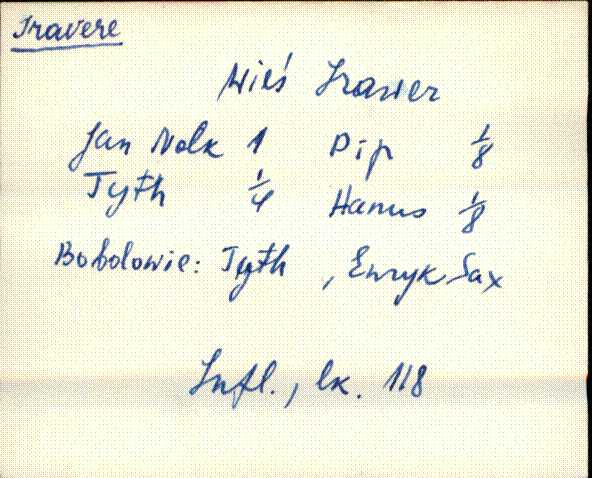 Travere
Wieś Trawer
Jan Wolk 1 Pip 1/8
Tyth 1/4 Hanus 1/8
Bobolowie: Tyth, Enryk Sax
Infl., lk. 118